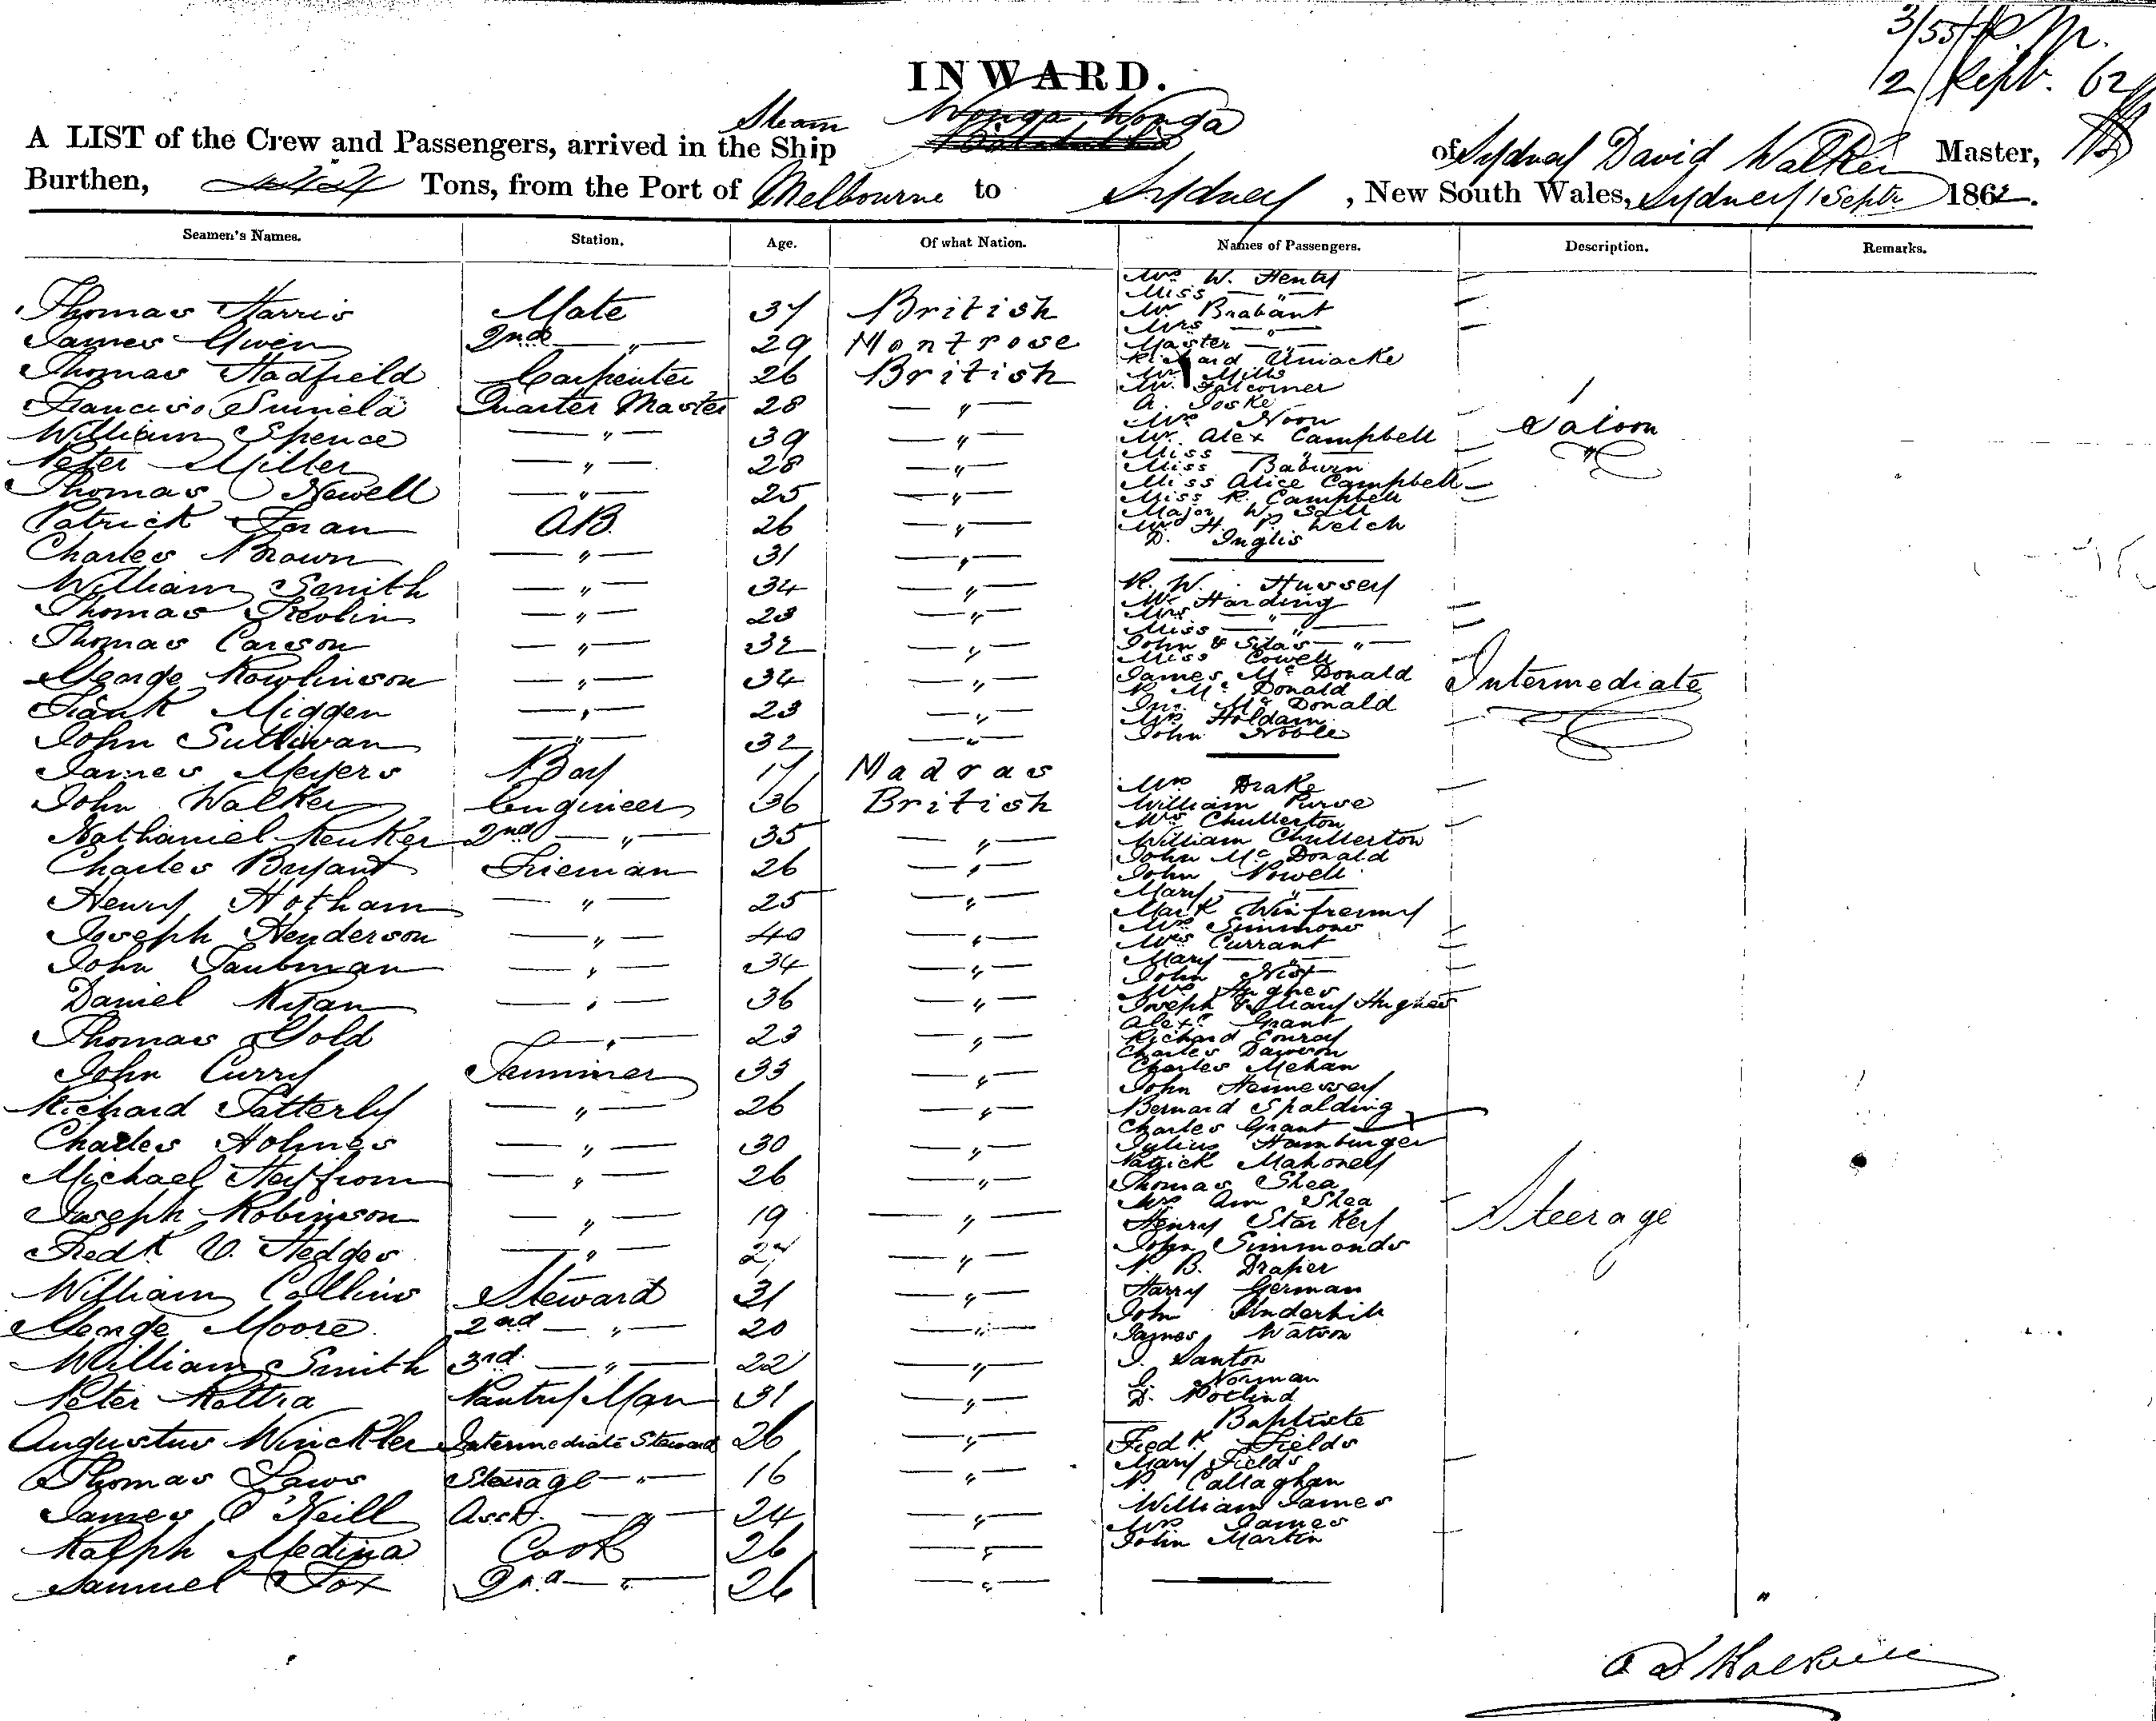 3/55 P.M.
2 Sept. 62
INWARD.
Steam Wonga Wonga
A LIST of the Crew and Passengers, arrived in the Ship of Sydney David Walker Master,
Burthen, Tons, from the Port of Melbourne to Sydney, New South Wales, Sydney 1 Septr 1862.
Seamen's Names. Station. Age. Of what Nation. Names of Passengers. Description. Remarks.
Thomas Harris Mate 37 British
James Given 2nd — " — 29 Montrose
Thomas Hadfield Carpenter 26 British
Quarter Master 28 — " —
William Spence — " — 39 — " —
Peter Miller — " — 28 — " —
Thomas Newell — " — 25 — " —
Patrick Foran AB. 26 — " —
Charles Brown — " — 31 — " —
William Smith — " — 34 — " —
Thomas — " — 23 — " —
Thomas Carson — " — 32 — " —
George Rowlinson — " — 34 — " —
Frank Miggen — " — 23 — " —
John Sullivan — " — 32 — " —
James Meyers Boy 17 Madras
John Walker Engineer 36 British
Nathaniel 2nd — " — 35 — " —
Charles Bryant Fireman 26 — " —
Henry Hotham — " — 25 — " —
Joseph Henderson — " — 40 — " —
John Taubman — " — 34 — " —
Daniel Ryan — " — 36 — " —
Thomas Gold — " — 23 — " —
John Curry Trimmer 33 — " —
Richard Satterly — " — 26 — " —
Charles Holmes — " — 30 — " —
Michael — " — 26 — " —
Joseph Robinson — " — 19 — " —
Fredk V. Hedges — " — 27 — " —
William Collins Steward 31 — " —
George Moore 2nd — " — 20 — " —
William Smith 3rd — " — 22 — " —
Peter Pantry Man 31 — " —
Augustus Winckler Intermediate Steward 26 — " —
Thomas Laws Steerage — " — 16 — " —
James O'Neill Asst. — " — 24 — " —
Ralph Medina Cook 26 — " —
Samuel Fox 2nd — " — 26 — " —
Mrs W. Henty
Miss — " —
Mr Brabant
Mrs — " —
Master — " —
Richard Uniacke
Mr Mills
Mr. Falconer
A. Joske
Mrs Noon
Mr. Alex Campbell
Miss — " —
Miss Baburn
Miss Alice Campbell
Miss R. Campbell
Major W.
H. P. Welch
D. Inglis
Saloon
R. W. Hussey
Mr Harding
Mrs — " —
Miss — " —
John & Silas — " —
Miss Cowell
James McDonald
R McDonald
Jno. McDonald
Mrs Holdam
John Noble
Intermediate
Mrs Drake
William Purse
Mrs Chullerton
William Chullerton
John McDonald
John Powell
Mary — " —
Mark
Mrs Simmons
Mrs Currant
Mary — " —
John Nix
Mrs Hughes
Joseph & Mary Hughes
Alexr Grant
Richard Conroy
Charles Dawson
Charles Mehan
John Hennessey
Bernard Spalding
Charles Grant
Julius Hamburger
Patrick Mahoney
Thomas Shea
Mrs Ann Shea
Henry Starkey
John Simmonds
P. B. Draper
Harry German
John Underhill
James Watson
J. Santon
J. Norman
D.
— Baptiste
Fredk Fields
Mary Fields
P. Callaghan
William James
Mrs James
John Martin
Steerage